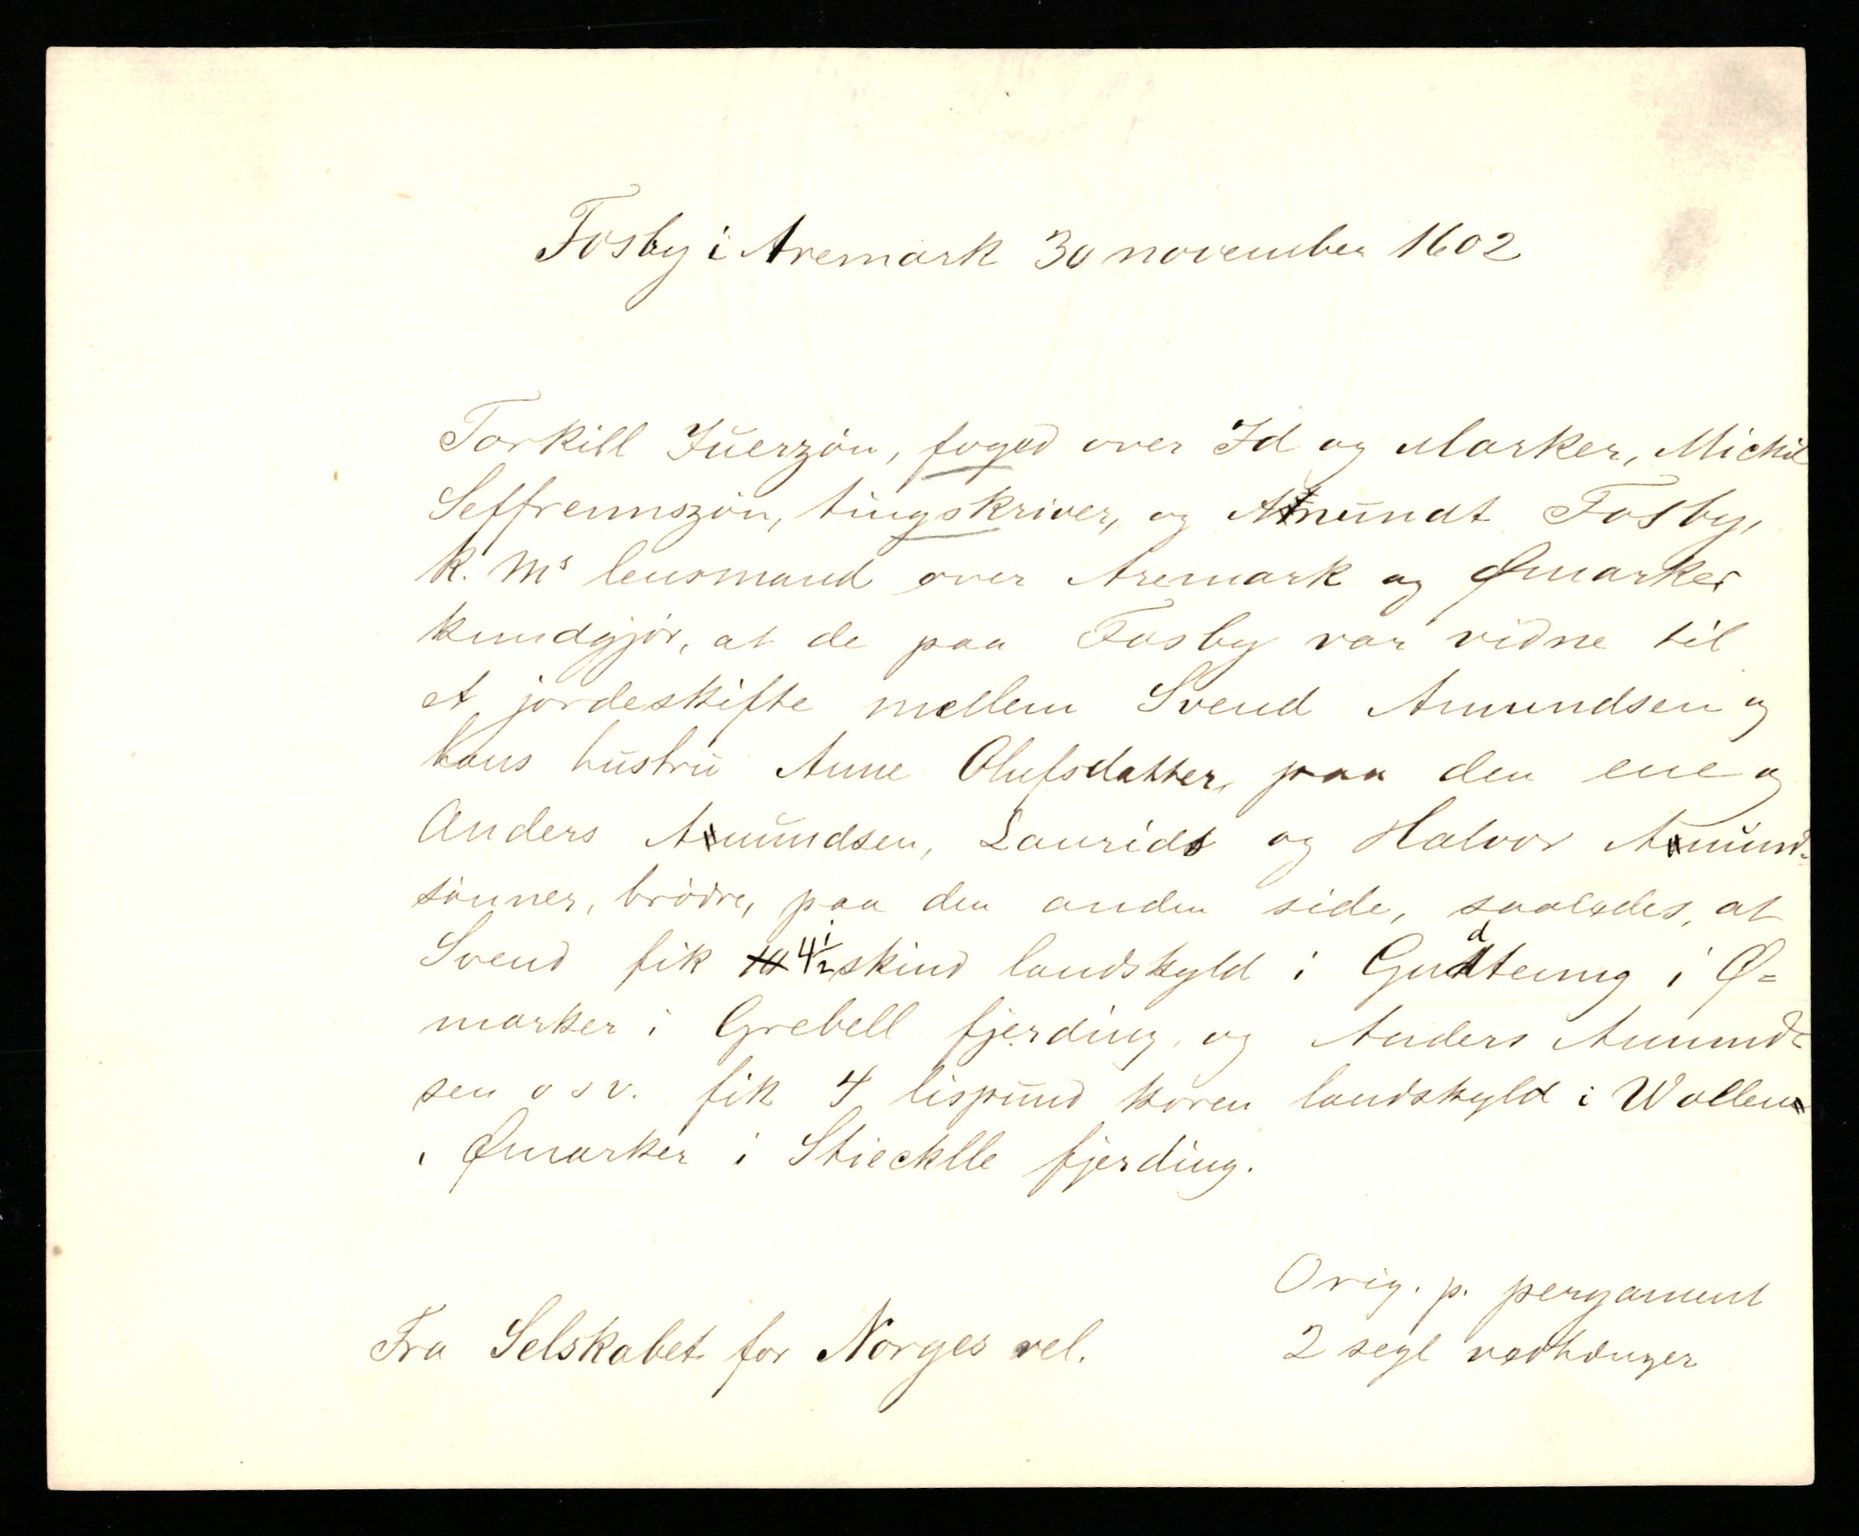 Fosby i Aremark 30 november 1602
Torkill Juerzón, foged over Id og Marker, Michil
Seffrennszón, tingskriver, og Amundt Fosby,
K. Ms lensmand over Aremark og Ømarker
kundgjór, at de paa Fosby var vidne til
et jordeskifte mellem Svend Amundsen og
hans hustru Anne Olufsdatter, paa den ene og
Anders Amundsen, Laurids og Halvor Amund-
sónner, bródre, paa den anden side, saaledes, at
Svend fik 4½ skind landskyld i Gudtenng i Ø=
marker i Grebell fjerding, og Anders Amund=
sen o s v. fik 4 lispund koren landskyld i Wollen
i Ømarker i Stiecklle fjerding.
Orig. p. pergament
Fra Selskabet for Norges vel.
2 segl vedhænger